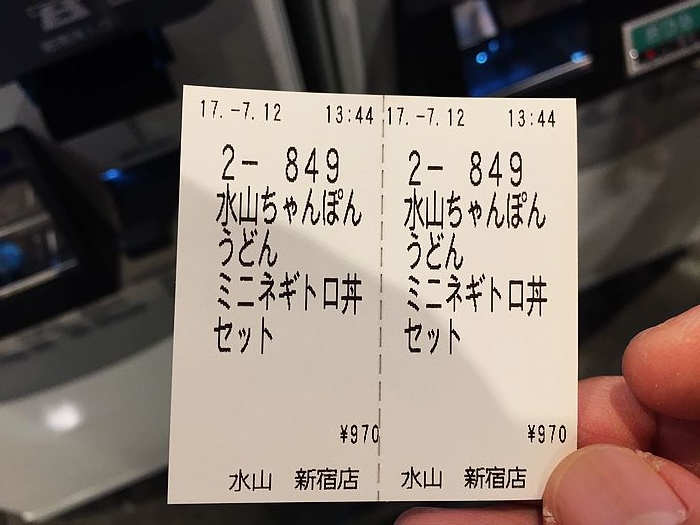 17.-7.12 13:44
2- 849
水山ちゃんぽん
うどん
ミニネギトロ丼
セット
¥970
水山 新宿店
17.-7.12 13:44
2- 849
水山ちゃんぽん
うどん
ミニネギトロ丼
セット
¥970
水山 新宿店